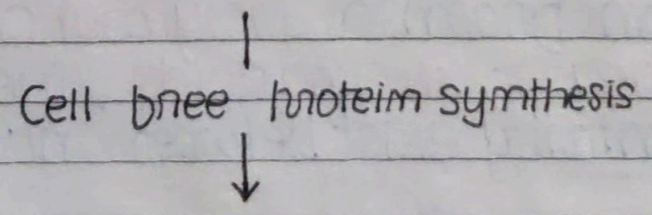 Cell free protein synthesis